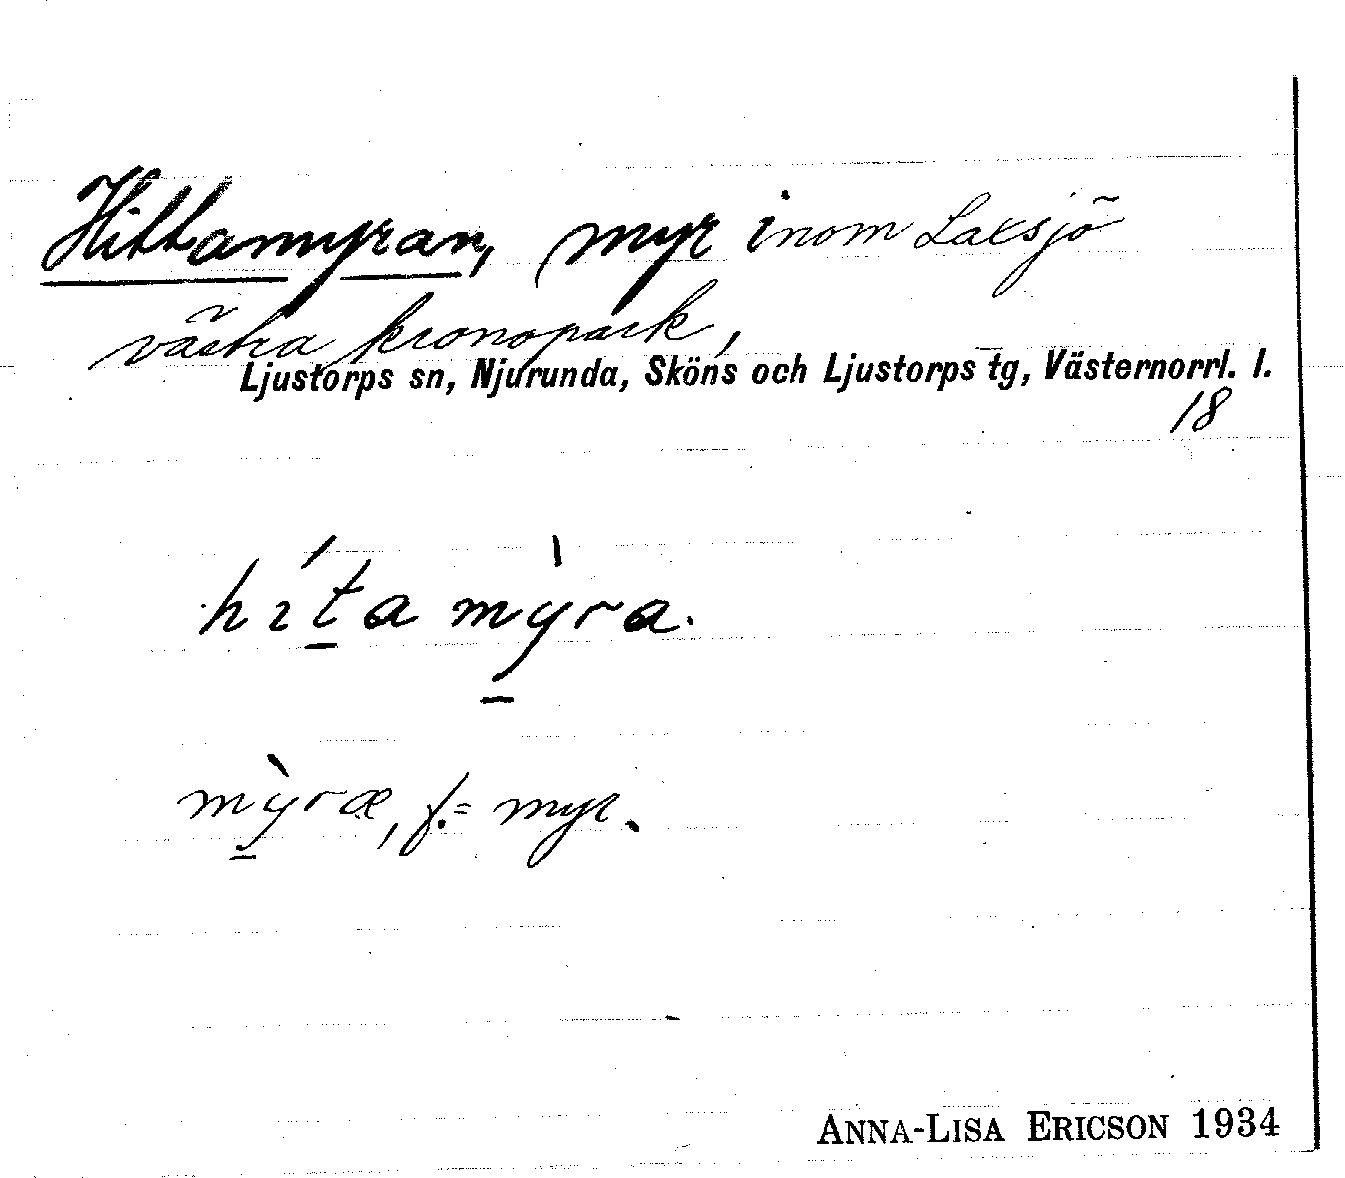 Hittamyran, myr inom Laxsjö
västra kronopark,
Ljustorps sn, Njurunda, Sköns och Ljustorps tg, Västernorrl. l.
18
hít̲a mỳ̲ra.
mỳ̲ræ, f. = myr.
ANNA-LISA ERICSON 1934